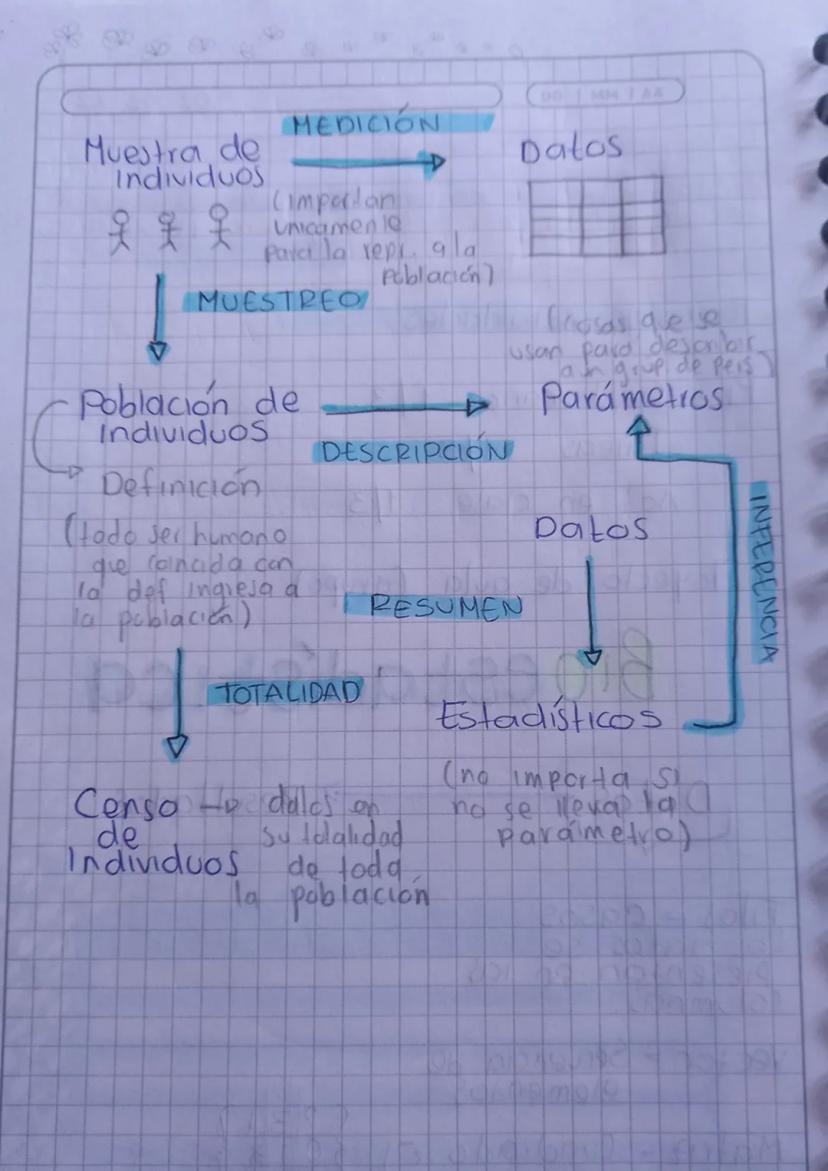 DD / MM / AA
MEDICIÓN
Muestra de
individuos
Datos
(importan
unicamente
para la repr. a la
población)
MUESTREO
(cosas que se
usan para describir
a un grup. de pers)
Población de
individuos
Parámetros
DESCRIPCIÓN
Definición
(todo ser humano
que coincida con
la def ingresa a
la población)
Datos
INFERENCIA
RESUMEN
TOTALIDAD
Estadísticos
(no importa si
no se lleva la
parámetro)
Censo → datos en
de su totalidad
Individuos de toda
la población